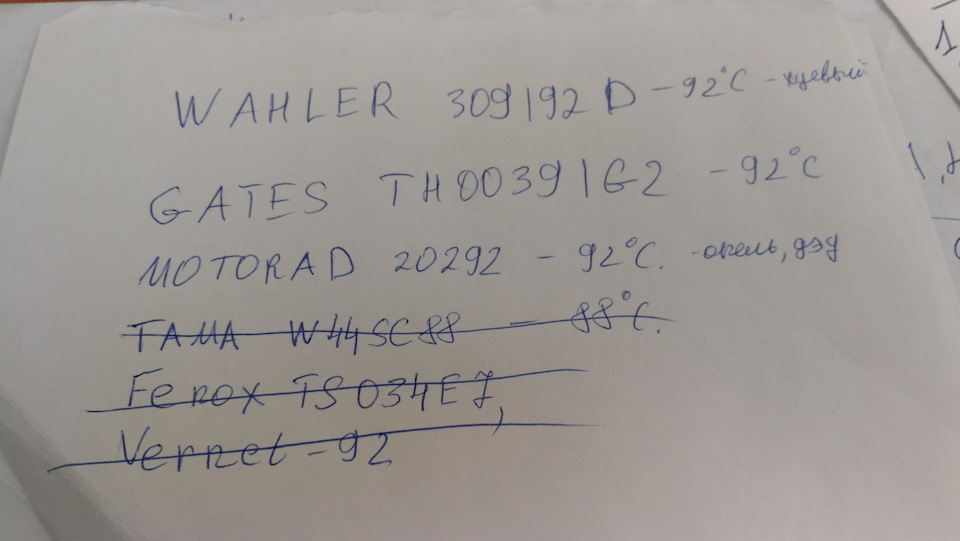 WAHLER 309192 D - 92°C - хуевый
GATES TH00391G2 - 92°C
MOTORAD 20292 - 92°C. - опель, дэу
TAMA W44SC88 - 88°C.
Ferox TS034E7,
Vernet - 92